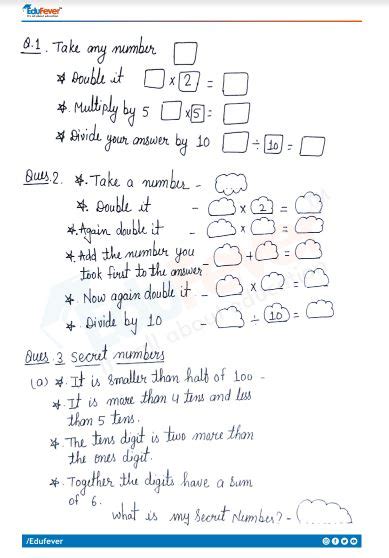 EduFever
It's all about education
Q.1. Take any number
* Double it × 2 =
* Multiply by 5 × 5 =
* Divide your answer by 10 ÷ 10 =
Ques.2. *. Take a number -
*. Double it - × 2 =
*. Again double it - × =
* Add the number you
took first to the answer - + =
*. Now again double it - × =
*. Divide by 10 - ÷ 10 =
Ques. 3 Secret numbers
(a) *. It is smaller than half of 100 -
*. It is more than 4 tens and less
than 5 tens.
*. The tens digit is two more than
the ones digit.
*. Together the digits have a sum
of 6.
What is my Secret Number? -
/Edufever